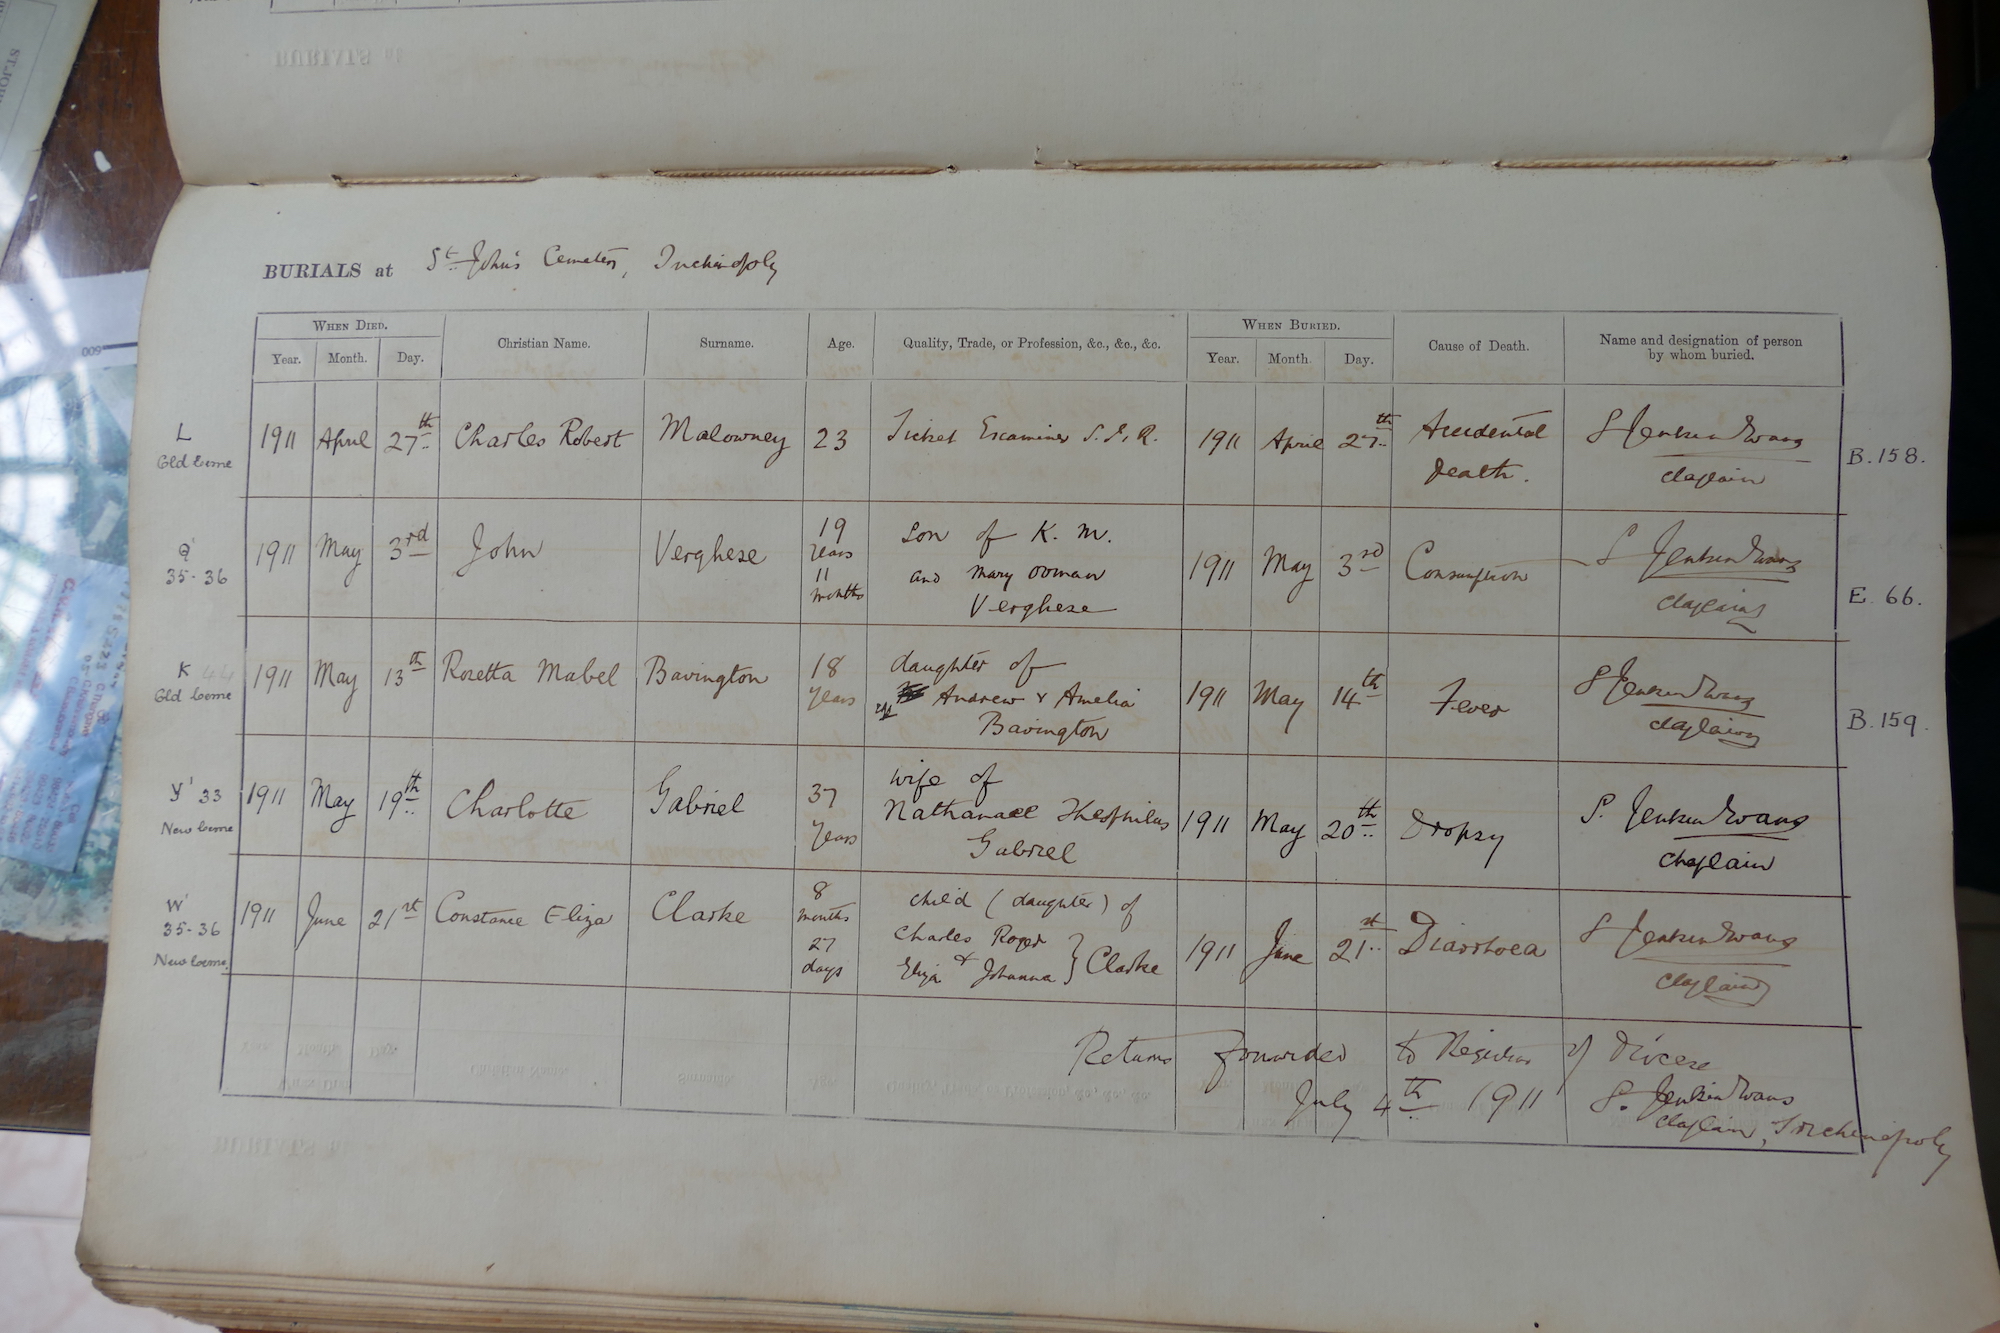 BURIALS at St. John's Cemetery, Trichinopoly
WHEN DIED. Christian Name. Surname. Age. Quality, Trade, or Profession, &c., &c., &c. WHEN BURIED. Cause of Death. Name and designation of person by whom buried.
Year. Month. Day. Year. Month. Day.
L
Old Ceme
1911 April 27th Charles Robert Malowney 23 Ticket Examiner S.I.R. 1911 April 27th Accidental Death. S Jenkin Evans
Chaplain
B.158.
Q'
35-36
1911 May 3rd John Verghese 19
years
11
months
Son of K. M.
and Mary Ooman
Verghese
1911 May 3rd Consumption S Jenkin Evans
Chaplain
E. 66.
K 44
Old Ceme
1911 May 13th Rosetta Mabel Bavington 18
years
daughter of
Andrew & Amelia
Bavington
1911 May 14th Fever S Jenkin Evans
Chaplain
B.159.
Y' 33
New Ceme
1911 May 19th Charlotte Gabriel 37
years
wife of
Nathanael Theophilus
Gabriel
1911 May 20th Dropsy S. Jenkin Evans
Chaplain
W'
35-36
New Ceme.
1911 June 21st Constance Eliza Clarke 8
months
27
days
child (daughter) of
Charles Roger
&
Eliza Johanna } Clarke
1911 June 21st Diarrhoea S Jenkin Evans
Chaplain
Returns forwarded to Registrar of Diocese
July 4th 1911 S. Jenkin Evans
Chaplain, Trichinopoly